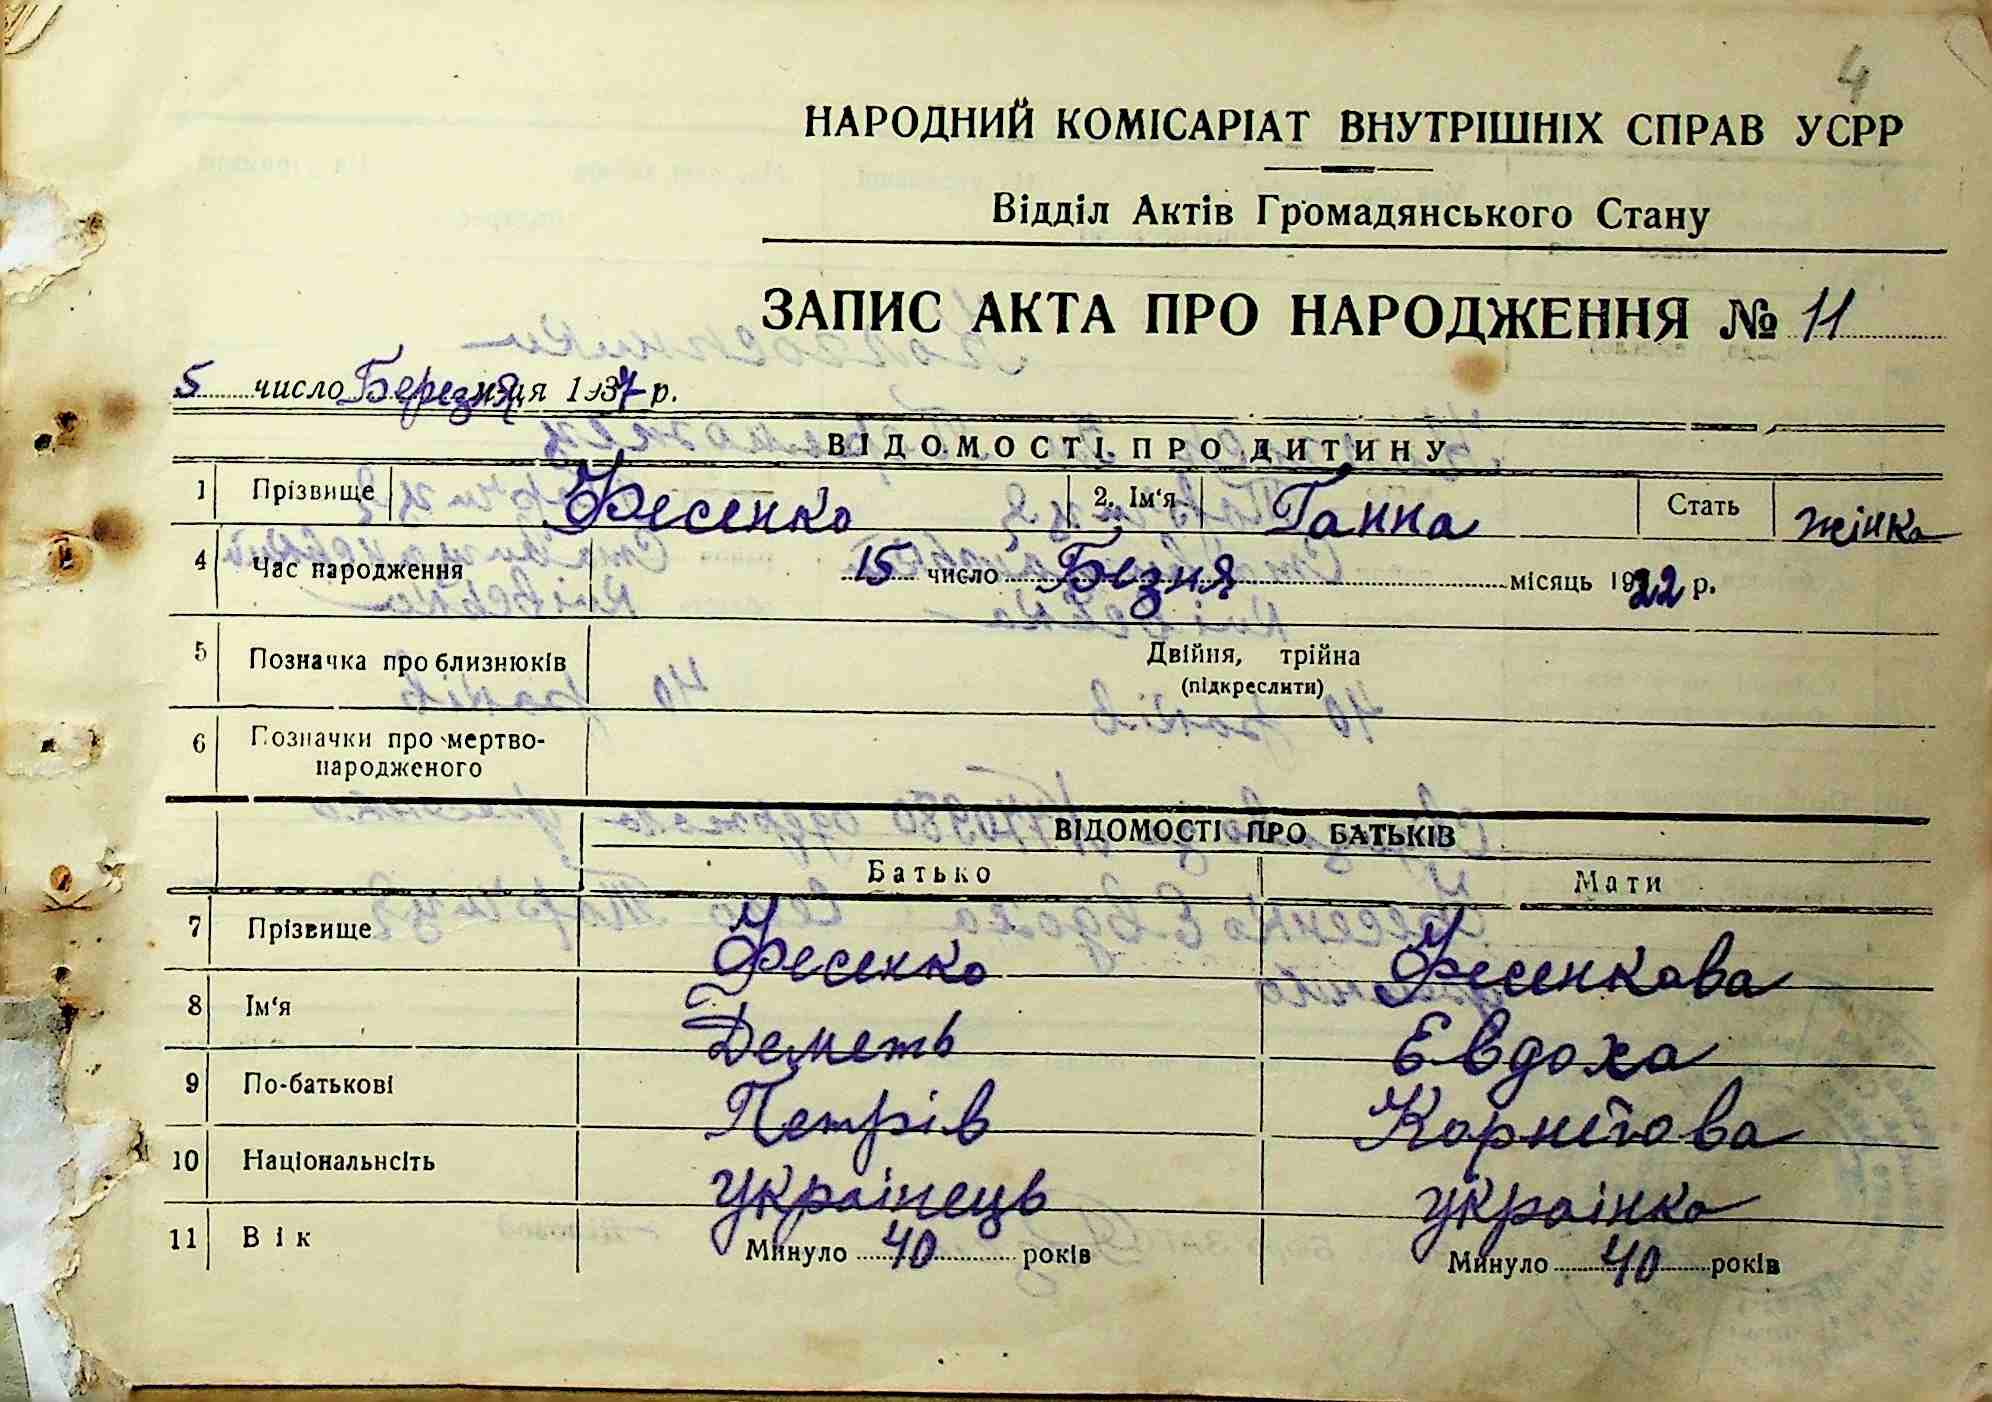 4
НАРОДНИЙ КОМІСАРІАТ ВНУТРІШНІХ СПРАВ УСРР
Відділ Актів Громадянського Стану
ЗАПИС АКТА ПРО НАРОДЖЕННЯ № 11
5 число Березня місяця 1937 р.
ВІДОМОСТІ ПРО ДИТИНУ
1 Прізвище Фесенко 2. Ім'я Ганна Стать жінка
4 Час народження 15 число Безня місяць 1922 р.
5 Позначка про близнюків Двійня, трійна
(підкреслити)
6 Позначки про мертво-
народженого
ВІДОМОСТІ ПРО БАТЬКІВ
Батько Мати
7 Прізвище Фесенко Фесенкова
8 Ім'я Деметь Евдоха
9 По-батькові Петрів
10 Національнсіть українець українка
11 Вік Минуло 40 років Минуло 40 років